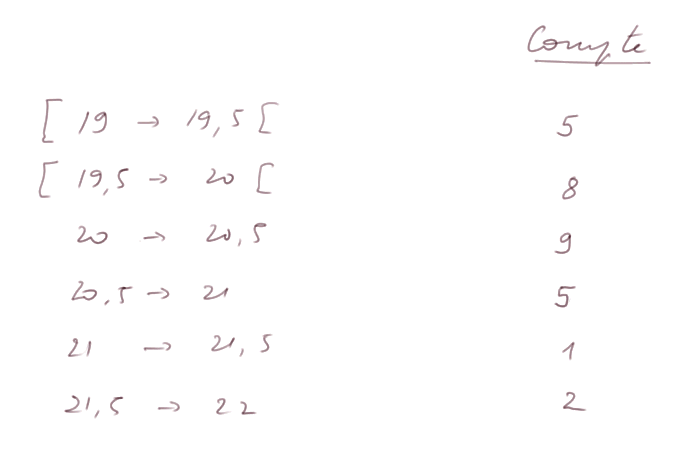 Compte
[ 19 → 19,5 [ 5
[ 19,5 → 20 [ 8
20 → 20,5 9
20,5 → 21 5
21 → 21,5 1
21,5 → 22 2